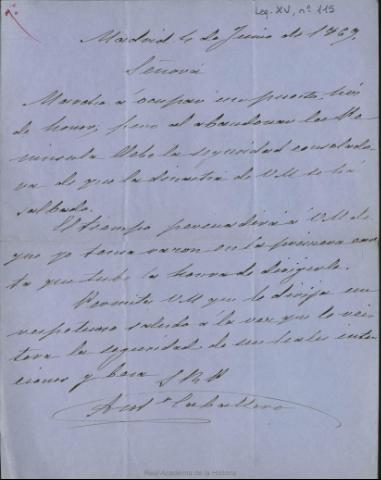 Leg. XV, nº 115
Madrid 4 de Junio de 1869.
Señora
Marcho á ocupar un puesto
de honor, pero al abandonar la
ninsula llebo la seguridad consolado-
ra de que la dinastia de V M se há
salbado.
El tiempo persuadirá á V M de
que yo tenia razon en la primera car-
ta que tube la honra de dirigirle.
Permita V M que le dirija un
respetuoso saludo á la vez que le rei-
tera la seguridad de sus leales inten-
ciones y besa S R P
Antº Caballero
Real Academia de la Historia